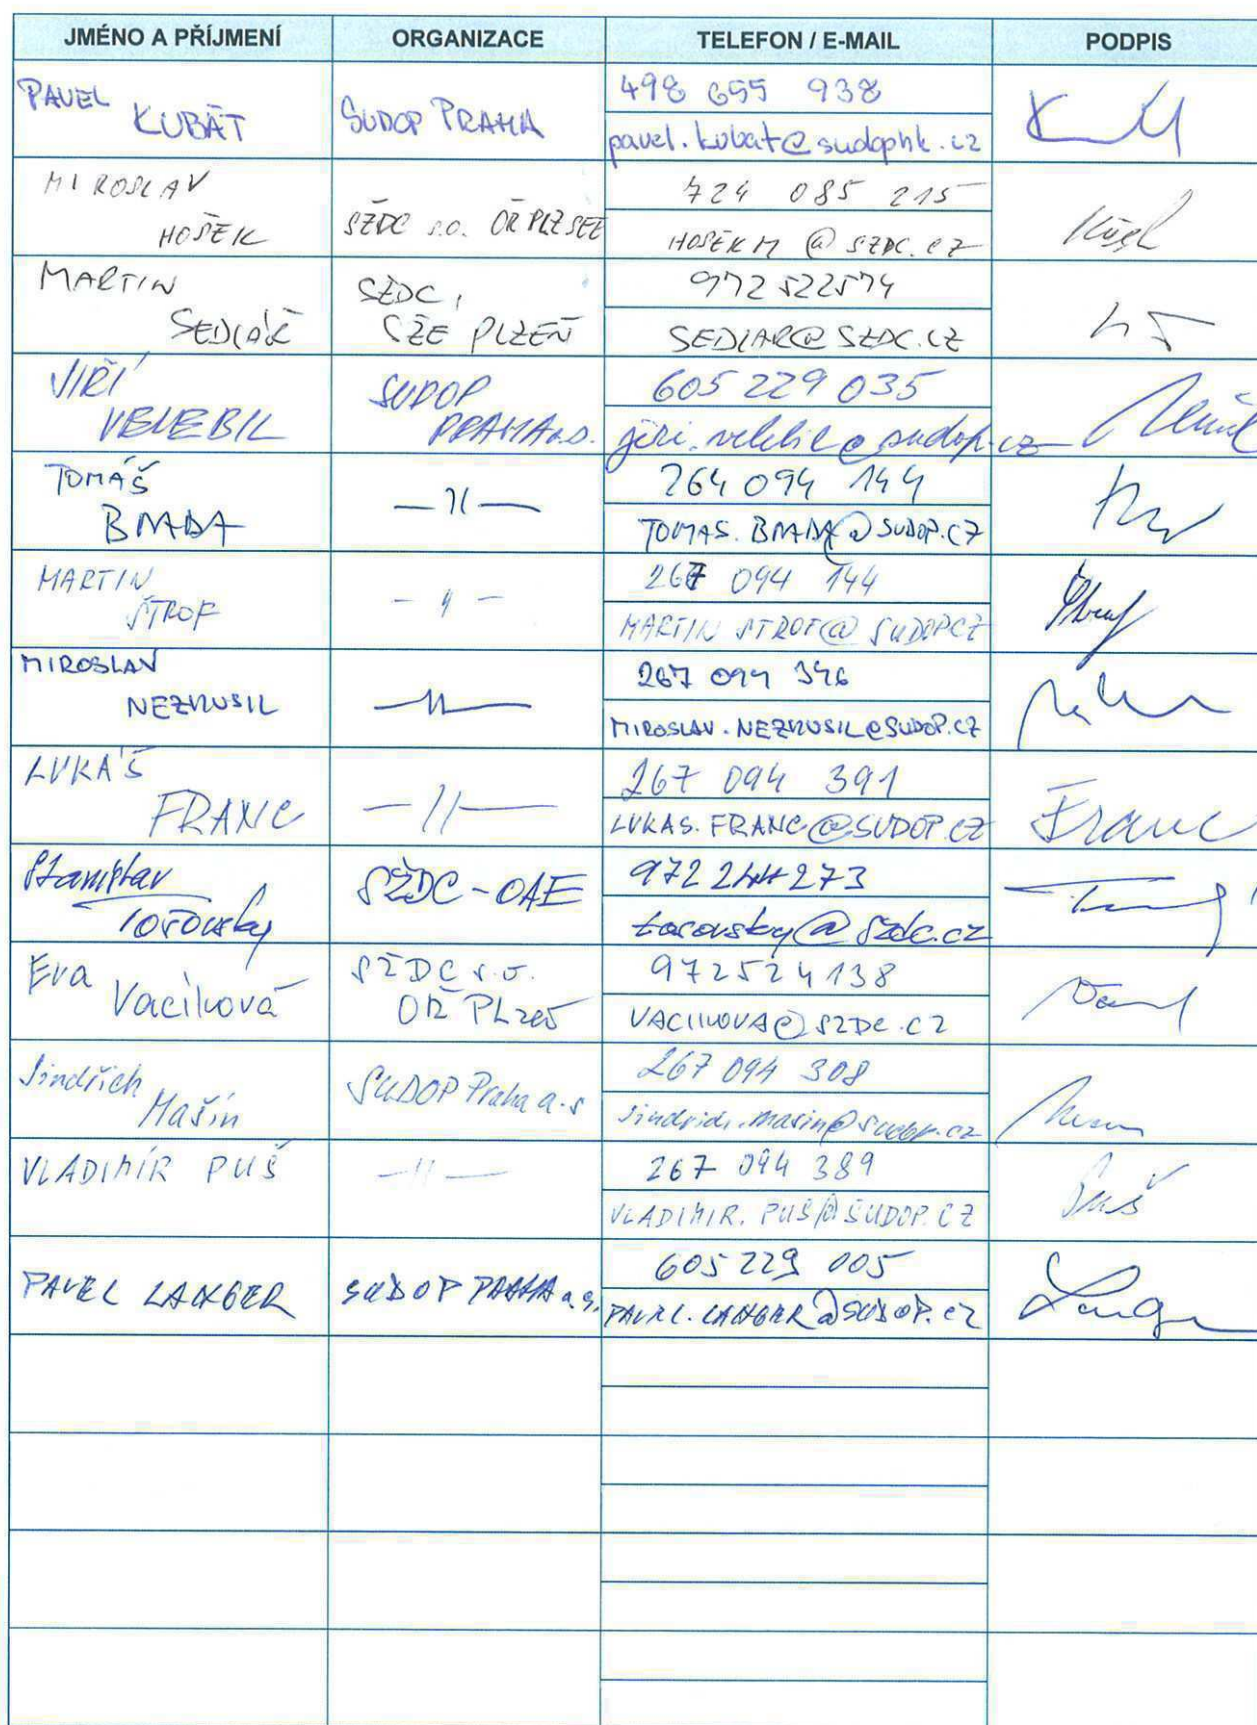 JMÉNO A PŘÍJMENÍ ORGANIZACE TELEFON / E-MAIL PODPIS
PAVEL KUBÁT SUDOP PRAHA 498 655 938
pavel.kubat@sudophk.cz
MIROSLAV HOŠEK SŽDC s.o. OŘ PLZ SEE 724 085 215
HOSEKM@SZDC.CZ
MARTIN SEDLÁŘ SŽDC, SŽE PLZEŇ 972 522574
SEDLAR@SZDC.CZ
JIŘÍ VELEBIL SUDOP PRAHA a.s. 605 229 035
jiri.velebil@sudop.cz
TOMÁŠ BRABA —//— 264 094 144
TOMAS.BRABA@SUDOP.CZ
MARTIN ŠTROF — // — 267 094 144
MARTIN STROF@SUDOP CZ
MIROSLAV NEZKUSIL —//— 267 094 346
MIROSLAV.NEZKUSIL@SUDOP.CZ
LUKÁŠ FRANC —//— 267 094 391 Franc
LUKAS.FRANC@SUDOP.CZ
Stanislav Tořovský SŽDC-OAE 972 244 273
torovsky@szdc.cz
Eva Vacíková SŽDC s.o. OŘ PLzeň 972524138
VACIKOVA@SZDC.CZ
Jindřich Mašín SUDOP Praha a.s 267 094 308
jindrich.masin@sudop.cz
VLADIMÍR PUŠ —//— 267 094 389 Puš
VLADIMIR.PUS@SUDOP.CZ
PAVEL LANGER SUDOP PRAHA a.s. 605 229 005
PAVEL.LANGER@SUDOP.CZ